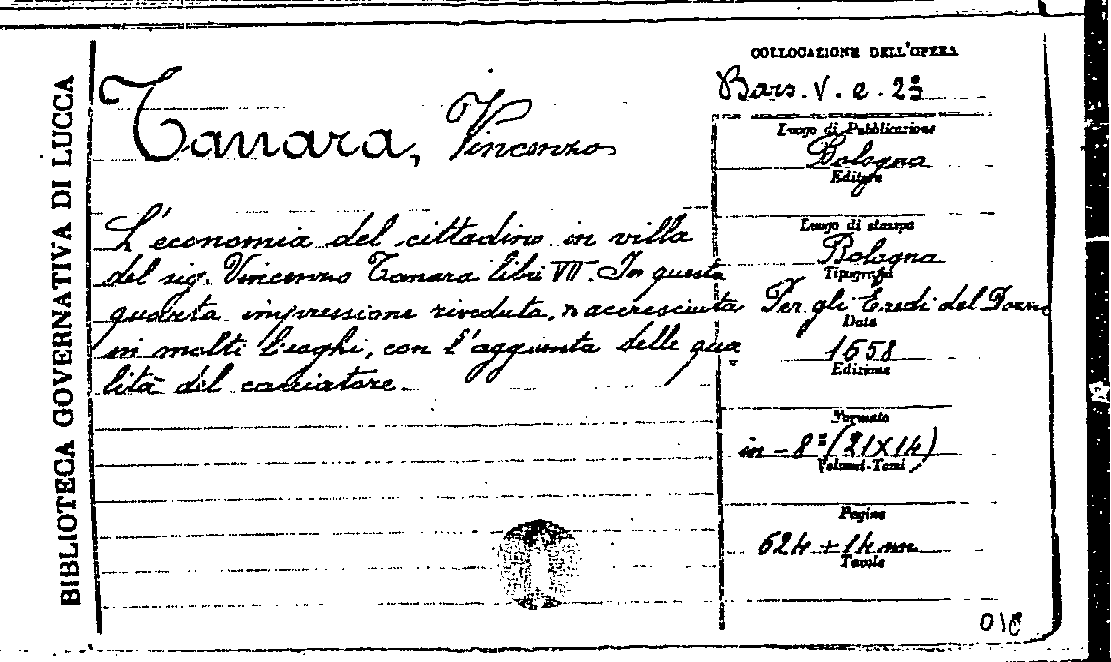 BIBLIOTECA GOVERNATIVA DI LUCCA
Tanara, Vincenzo
L'economia del cittadino in villa
del sig. Vincenzo Tanara libri VII. In questa
quarta impressione riveduta, n accresciuta
in molti luoghi, con l'aggiunta delle qua
lità del cacciatore.
COLLOCAZIONE DELL'OPERA
Bars. V. e. 23
Luogo di Pubblicazione
Bologna
Editore
Luogo di stampa
Bologna
Tipografia
Per gli Eredi del Dozza
Data
1658
Edizione
Formato
in-8º (21X14)
Volumi-Tomi
Pagine
624 + 14 nn
Tavole